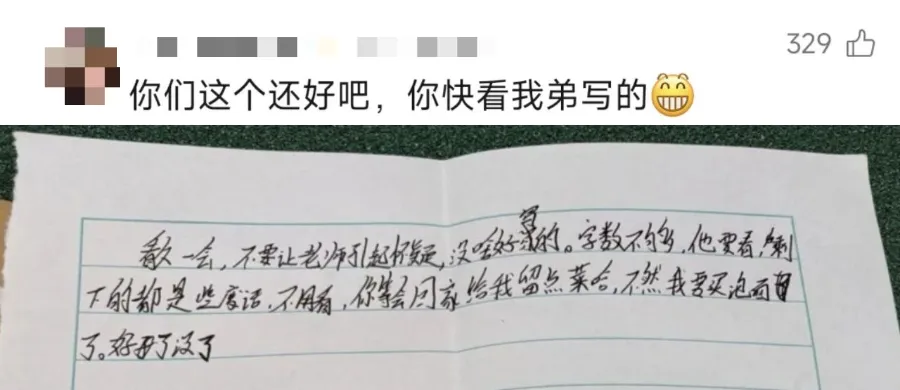 329
你们这个还好吧，你快看我弟写的😁
歇一会，不要让老师引起怀疑，没啥好写的。字数不够，他要看，剩
下的都是些废话，不用看，你等会回家给我留点菜哈，不然我要买泡面
了。好了没了